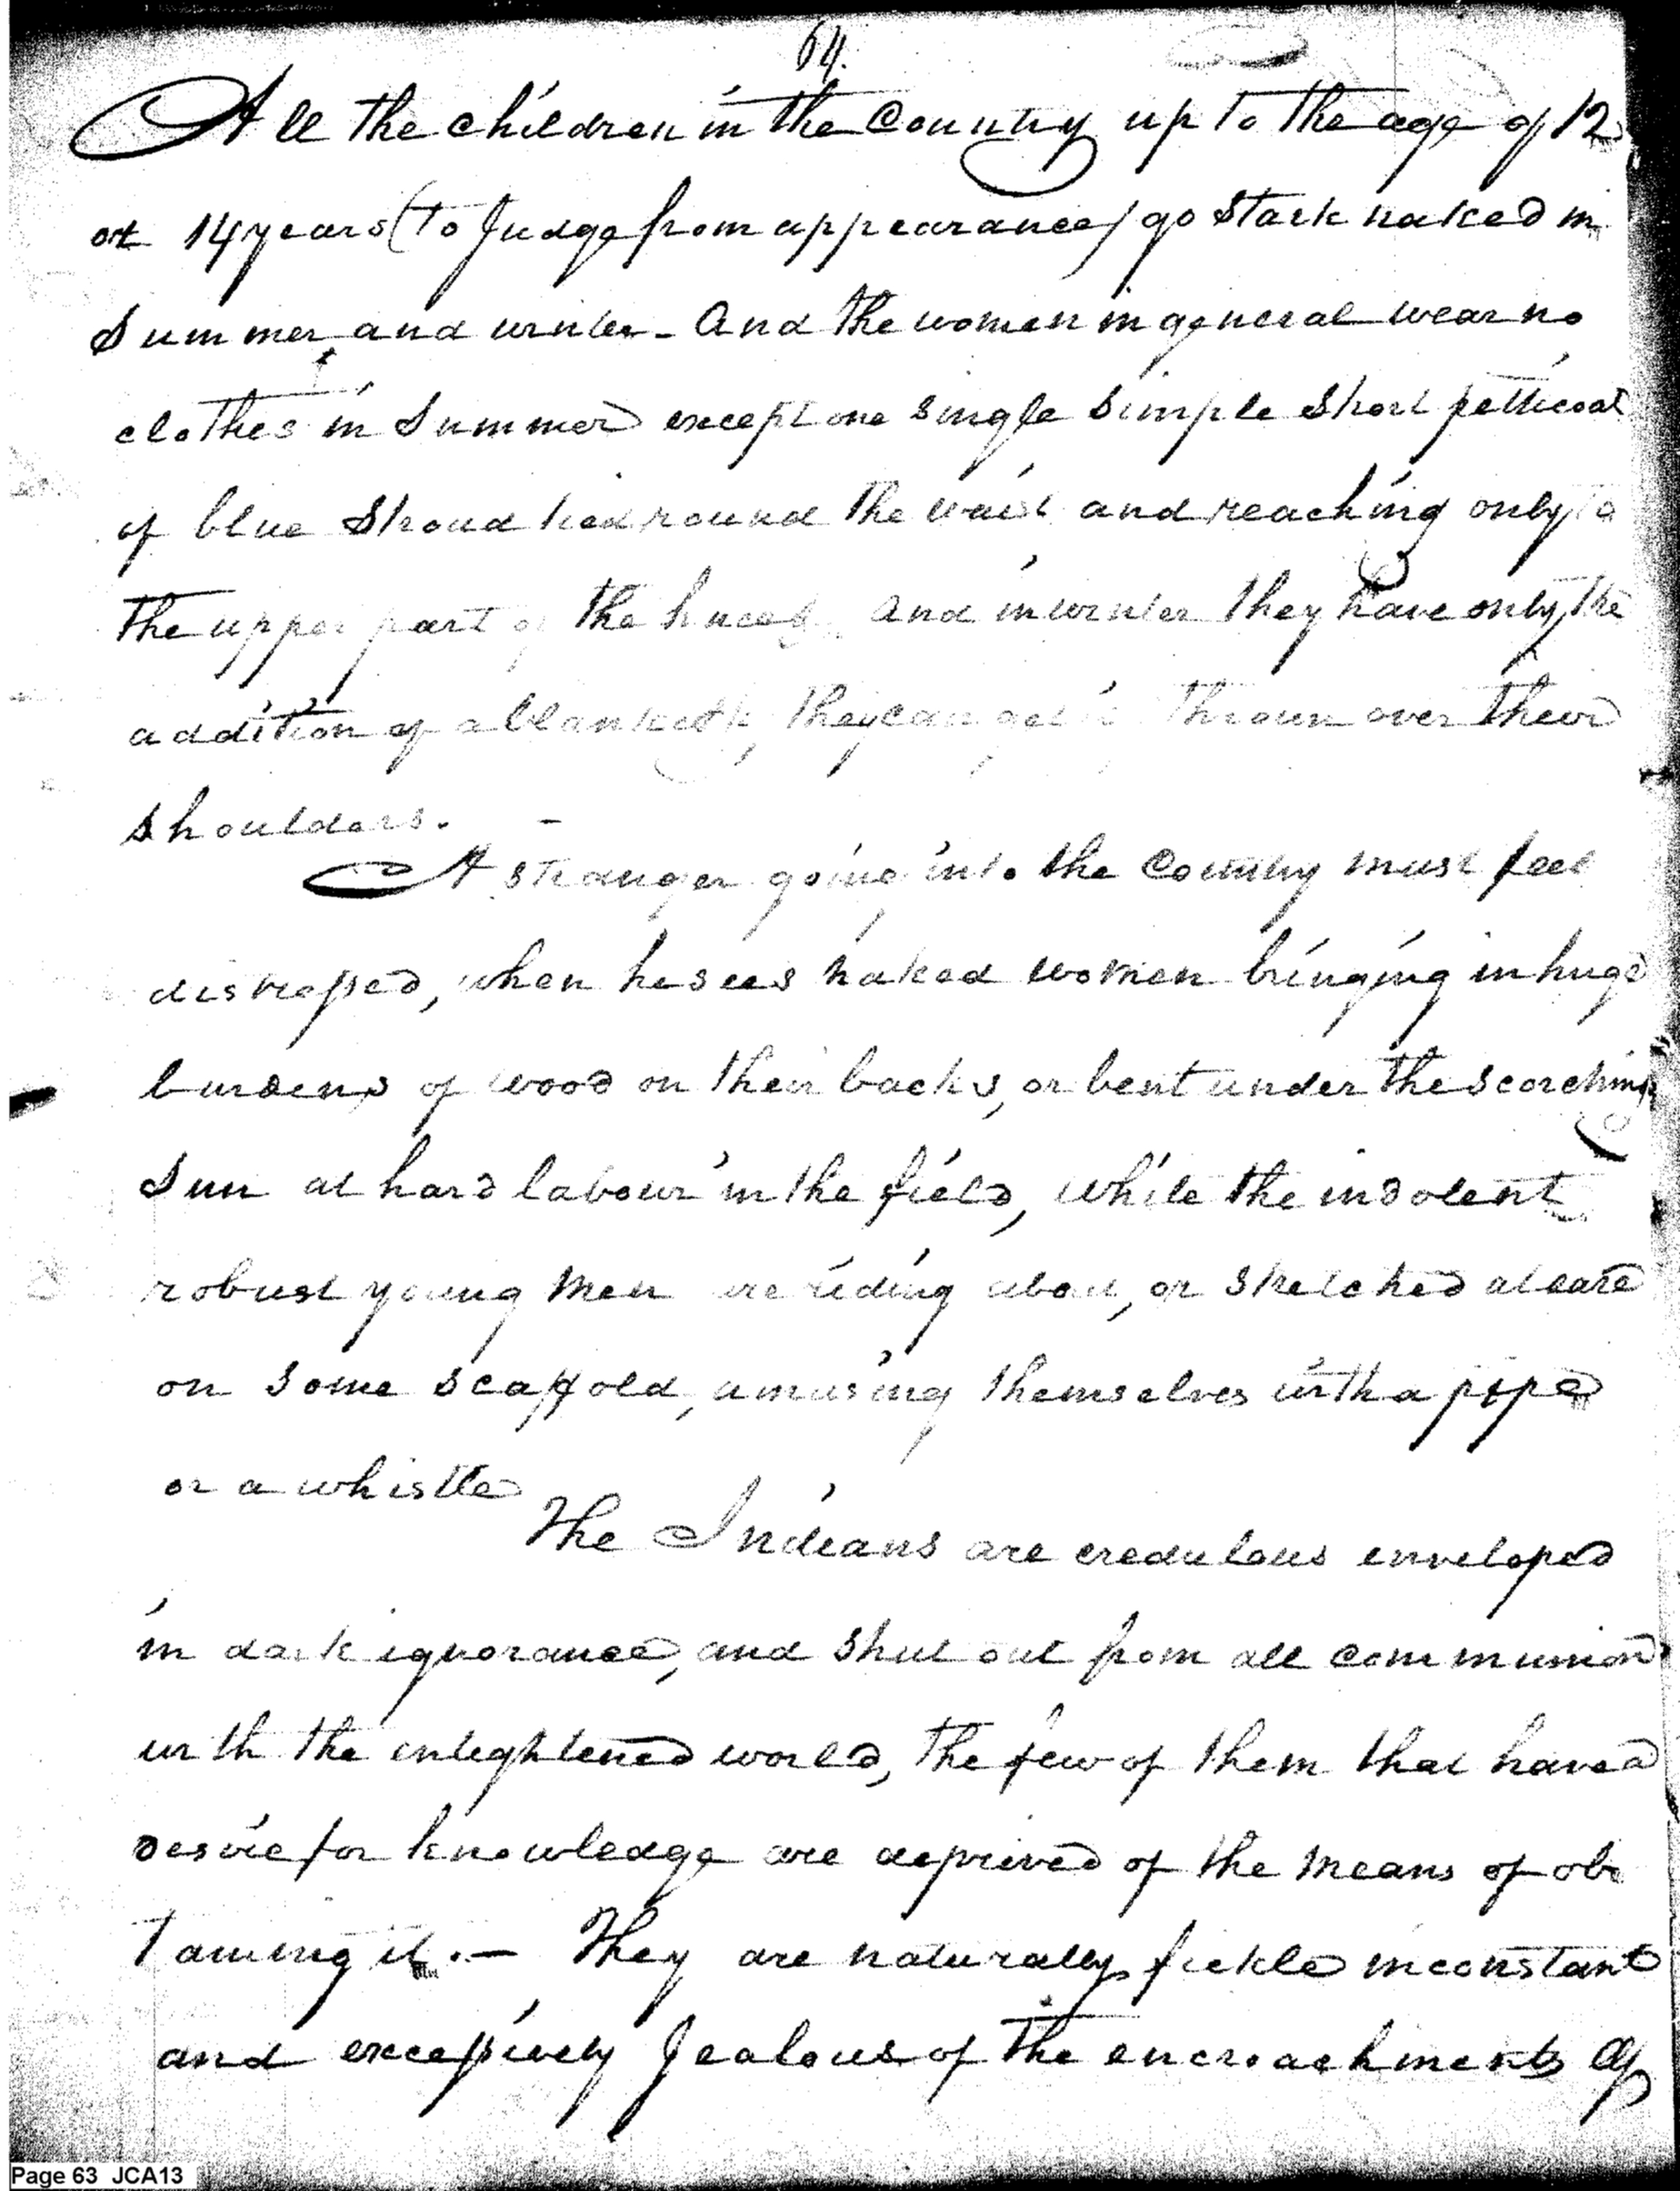 64.
All the children in the Country up to the age of 12
or 14 years (to Judge from appearance) go stark naked in
Summer and winter - And the women in general wear no
clothes in Summer except one single simple short petticoat
of blue Stroud tied round the waist and reaching only to
the upper part of the knees, and in winter they have only the
addition of a blanket if they can get it thrown over their
shoulders. -
A stranger going into the Country must feel
distressed, when he sees naked women bringing in huge
burdens of wood on their backs, or bent under the scorching
Sun at hard labour in the field, while the indolent
robust young men are riding about, or stretched at ease
on some scaffold, amusing themselves with a pipe
or a whistle
The Indians are credulous enveloped
in dark ignorance, and shut out from all communion
with the enlightened world, the few of them that have a
desire for knowledge are deprived of the means of ob
taining it. - They are naturally fickle inconstant
and excessively Jealous of the encroachments of
Page 63 JCA13